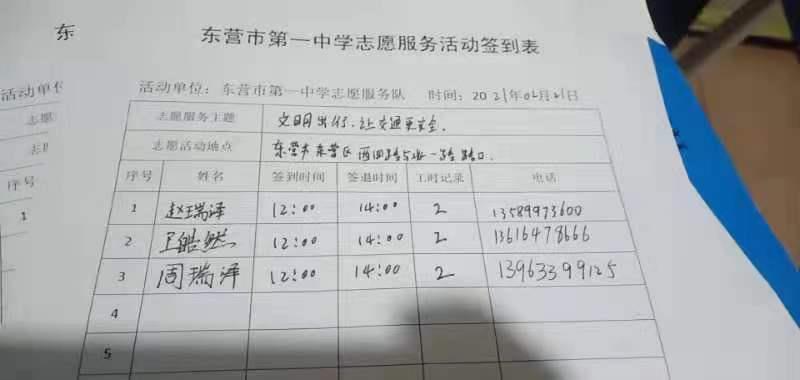 东
东营市第一中学志愿服务活动签到表
活动单位
活动单位：东营市第一中学志愿服务队 时间：2021年02月21日
志愿
志愿服务主题 文明出行，让交通更安全。
志愿活动地点 东营市东营区西四路与 一路 路口。
序号 姓名 签到时间 签退时间 工时记录 电话
序号
1 赵瑞泽 12:00 14:00 2 13589973600
1
2 王皓然 12:00 14:00 2 13616478666
3 周瑞泽 12:00 14:00 2 13963399125
4
5